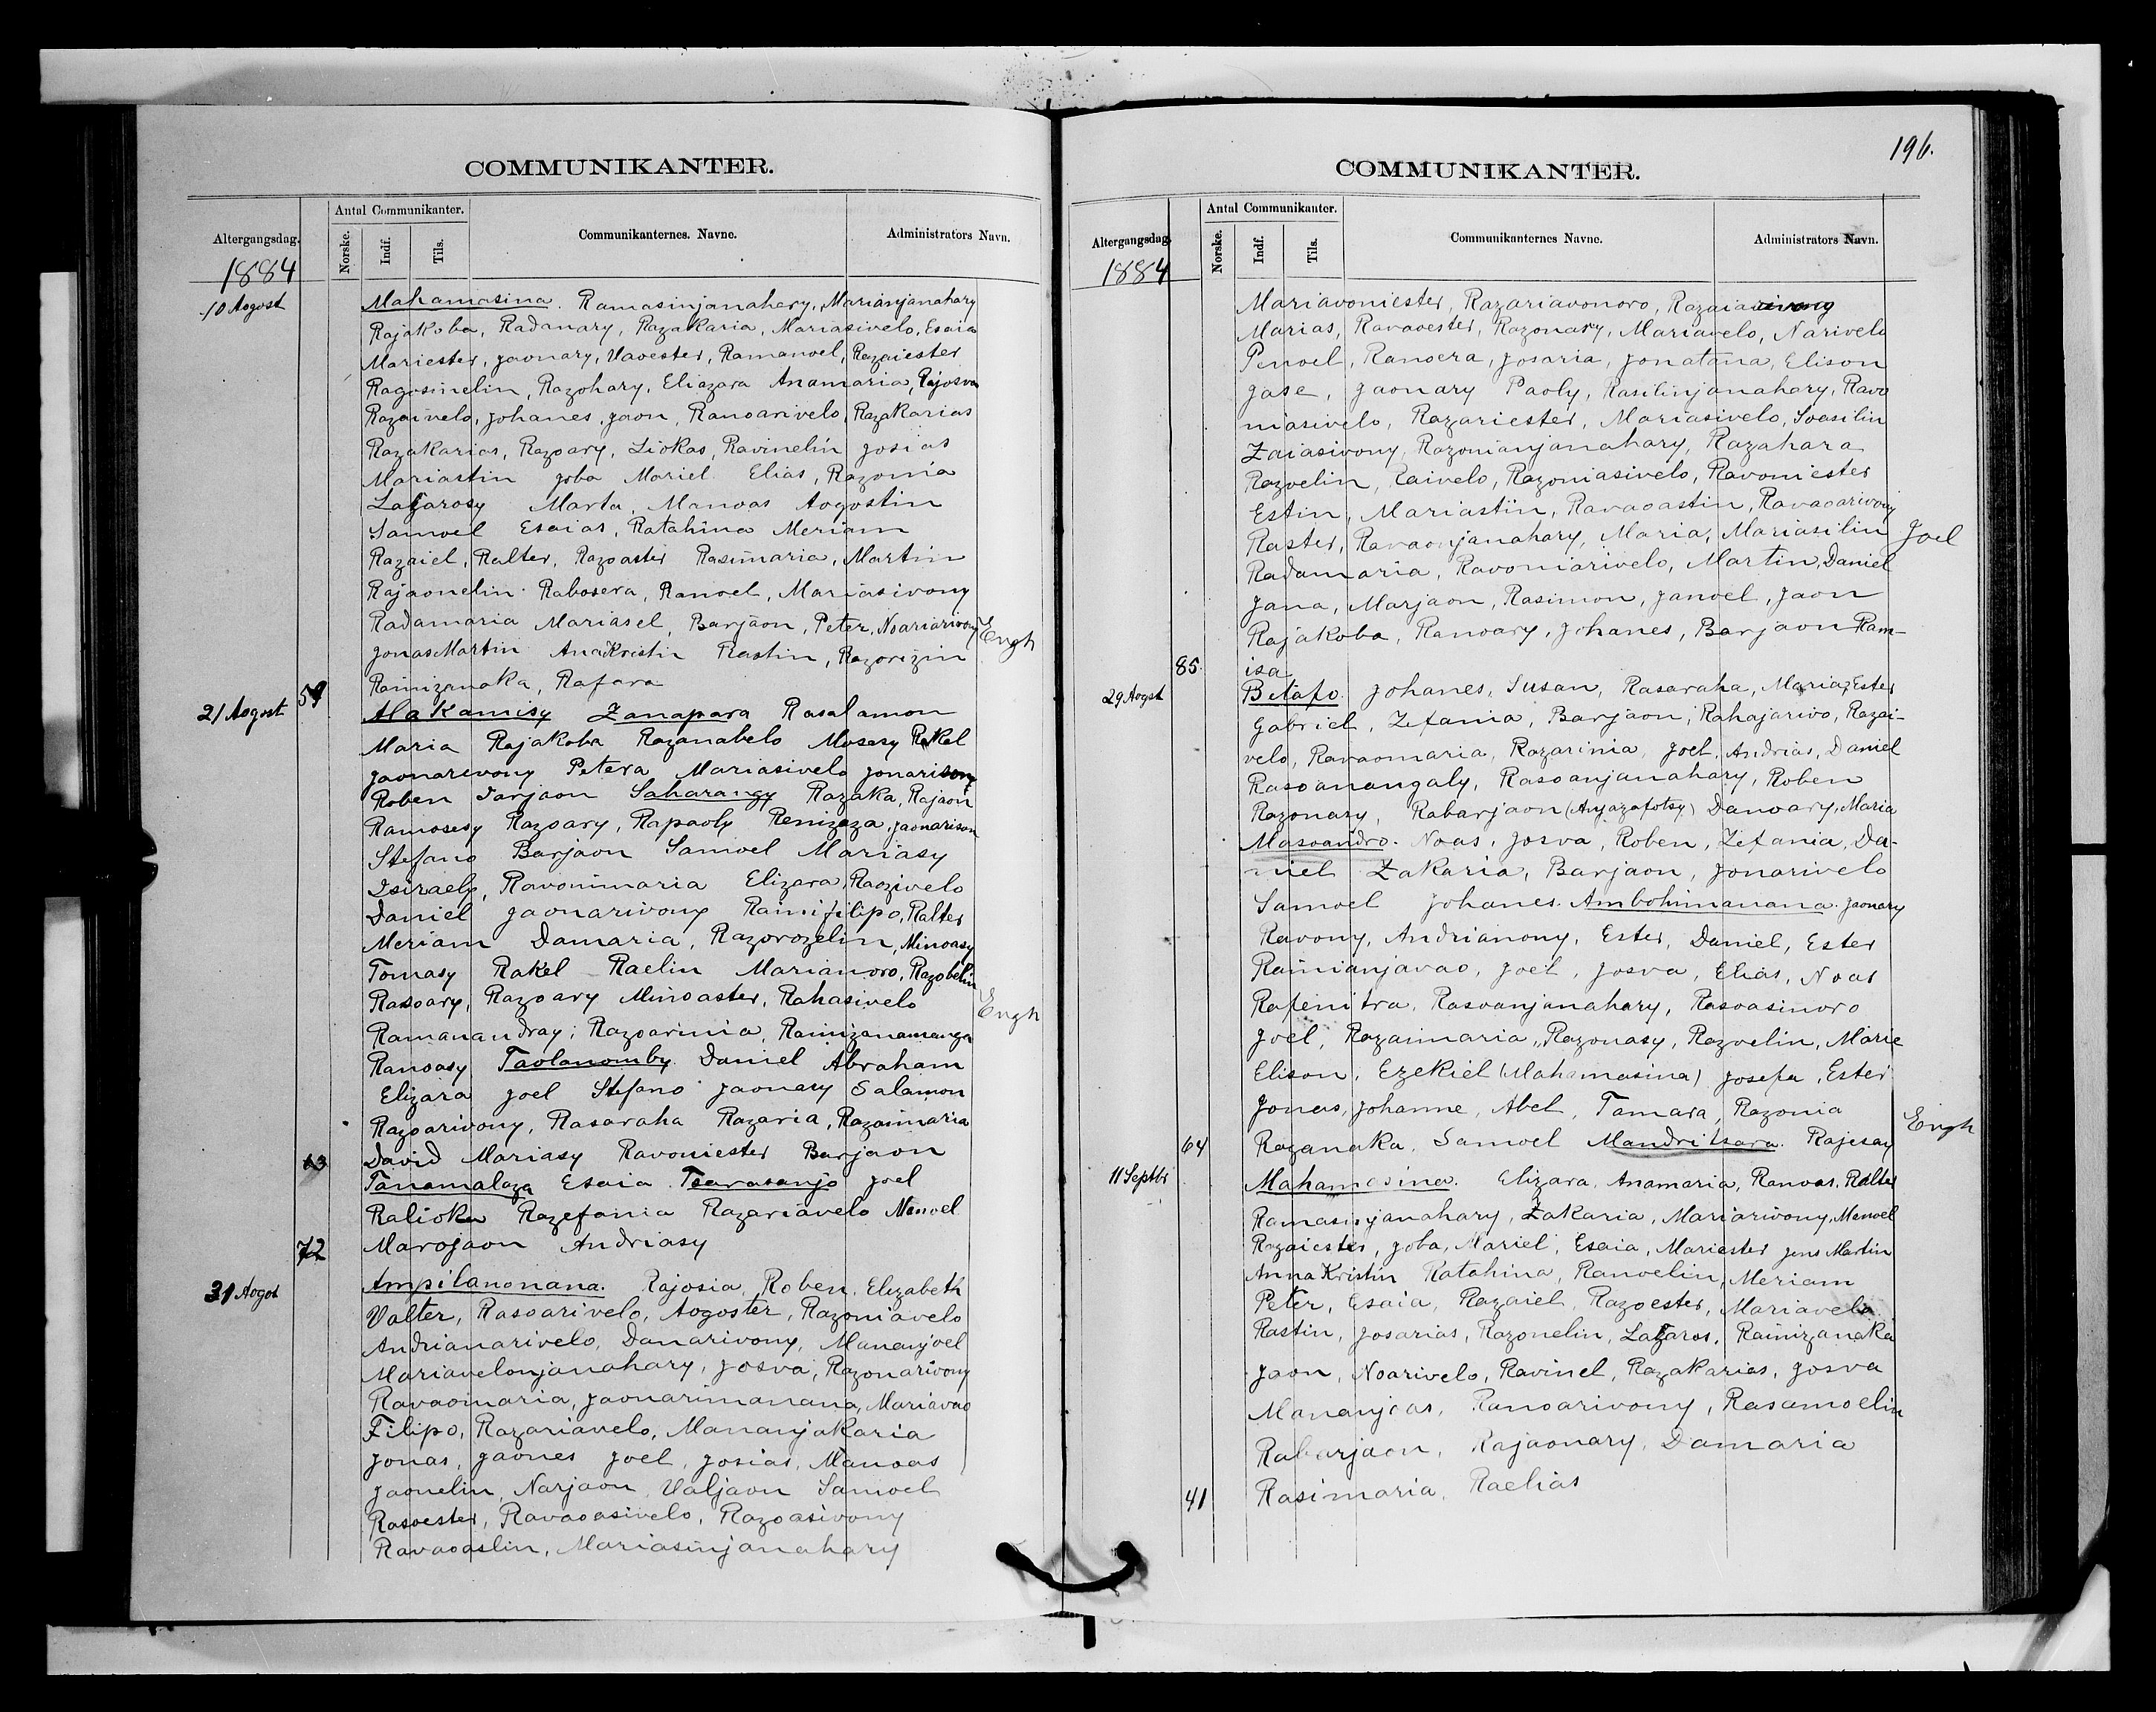 COMMUNIKANTER.
Altergangsdag. Antal Communikanter. Communikanternes. Navne. Administrators Navn.
Norske. Indf. Tils.
1884
10 Aogost Mahamasina. Ramasinjanahary, Marianjanahary
Rajakoba, Radanary, Razakaria, Mariasivelo, Esaia
Mariester, Jaonary, Vavester, Ramanoel, Razaiester
Ragosinelin, Razohary, Eliazara Anamaria, Rajosva
Razaivelo, Johanes, Jaon, Ranoarivelo, Razakarias
Razakarias, Razoary, Liokas, Ravinelin Josias
Mariastin Joba Mariel Elias, Razonia
Lazarosy Marta, Manoas Aogostin
Samoel Esaias, Ratahina Meriam
Razaiel, Ralter, Razoaster Rasimaria, Martin
Rajaonelin Rabosera, Ranoel, Mariasivony
Radamaria Mariasel, Barjaon, Peter, Noariarivony Engh
Jonas Martin Ana Kristin Rastin, Razorizin
59 Rainizanaka, Rafara
21 Aogost Alakamisy Zanapara Rasalamon
Maria Rajakoba Razanabelo Mosesy Rakel
Jaonarevony Petera Mariasivelo Jonarisony
Roben Iarjaon Saharangy Razaka, Rajaon
Ramosesy Razoary, Rapaoly Renizaza, Jaonarison
Stefano Barjaon Samoel Mariasy
Isiraely, Ravonimaria Elizara, Raozivelo
Daniel Jaonarivony Rainifilipo, Ralter
Meriam Damaria, Razorozelin, Minoasy
Tomasy Rakel Raelin Marianoro, Razobelin
Rasoary, Razoary Minoaster, Rahasivelo Engh
Ramanandray, Razoarinia, Rainizanamanga
Ranoasy Taolanomby Daniel Abraham
Elizara Joel Stefano Jaonary Salamon
Razoarivony, Rasaraha Razaria, Razaimaria
David Mariasy Ravoniester Barjaon
Tanamalaza Esaia Tsarasanjo Joel
Ralioka Razefania Razariavelo Manoel
72 Marojaon Andriasy
31 Aogost Ampilanonana. Rajosia, Roben, Elizabeth
Valter, Rasoarivelo, Aogoster, Razoniavelo
Andrianarivelo, Danarivony, Mananjoel
Mariavelonjanahary, Josva, Razonarivony
Ravaomaria, Jaonarimanana, Mariavao
Filipo, Razariavelo, Mananjakaria
Jonas, Jaones Joel, Josias, Manoas
Jaonelin, Narjaon, Valjaon Samoel
Rasoester, Ravaoasivelo, Razoasivony
Ravaoaslin, Mariasinjanahary
196.
COMMUNIKANTER.
Altergangsdag. Antal Communikanter. Communikanternes Navne. Administrators Navn.
Norske. Indf. Tils.
1884
Mariavoniester, Razariavonoro, Razaiavivony
Marias, Ravaoester, Razonary, Mariavelo, Narivelo
Penoel, Ranoera, Josaria, Jonatana, Elison
Jase, Jaonary Paoly, Rasilinjanahary, Ravo
masivelo, Razariester, Mariasivelo, Soasilin
Zaiasivony, Razonianjanahary, Razahara
Razoelin, Raivelo, Razoniasivelo, Ravoniester
Estin, Mariastin, Ravaoastin, Ravaoarivony
Raster, Ravaonjanahary, Maria, Mariasilin Joel
Radamaria, Ravoniarivelo, Martin, Daniel
Jana, Marjaon, Rasimon, Janoel, Jaon
Rajakoba, Ranoary, Johanes, Barjaon Ram-
85. isa
29 Aogst Betafo. Johanes, Susan, Rasaraha, Maria, Ester
Gabriel, Zefania, Barjaon, Rahajarivo, Razai-
velo, Ravaomaria, Razarinia, Joel, Andrias, Daniel
Rasoanangaly, Rasoanjanahary, Roben
Razonary, Rabarjaon (Anjazafotsy) Danoary, Maria
Masoandro. Noas, Josva, Roben, Zefania, Da-
niel Zakaria, Barjaon, Jonarivelo
Samoel Johanes. Ambohimanana. Jaonary
Ravony, Andrianony, Ester, Daniel, Ester
Rainianjavao, Joel, Josva, Elias, Noas
Rafenitra, Rasoanjanahary, Rasoasinoro
Joel, Razaimaria, Razonasy, Razoelin, Marie
Elison, Ezekiel (Mahamasina) Josefa, Ester
Jonas, Johanne, Abel, Tamara, Razonia Engh
64 Razanaka, Samoel Mandritsara. Rajesay
11 Septbr Mahamasina. Elizara, Anamaria, Ranoas, Ralter
Ramasinjanahary, Zakaria, Mariarivony, Manoel
Razaiester, Joba, Mariel, Esaia, Mariester Jons Martin
Anna Kristin Ratahina, Ranoelin, Meriam
Peter, Esaia, Razaiel, Razoester, Mariavelo
Rastin, Josarias, Razonelin, Lazaros, Rainizanaka
Jaon, Noarivelo, Ravinel, Razakarias, Josva
Mananjoas, Ranoarivony, Rasamoelin
Rabarjaon, Rajaonary, Damaria
41 Rasimaria, Raelias